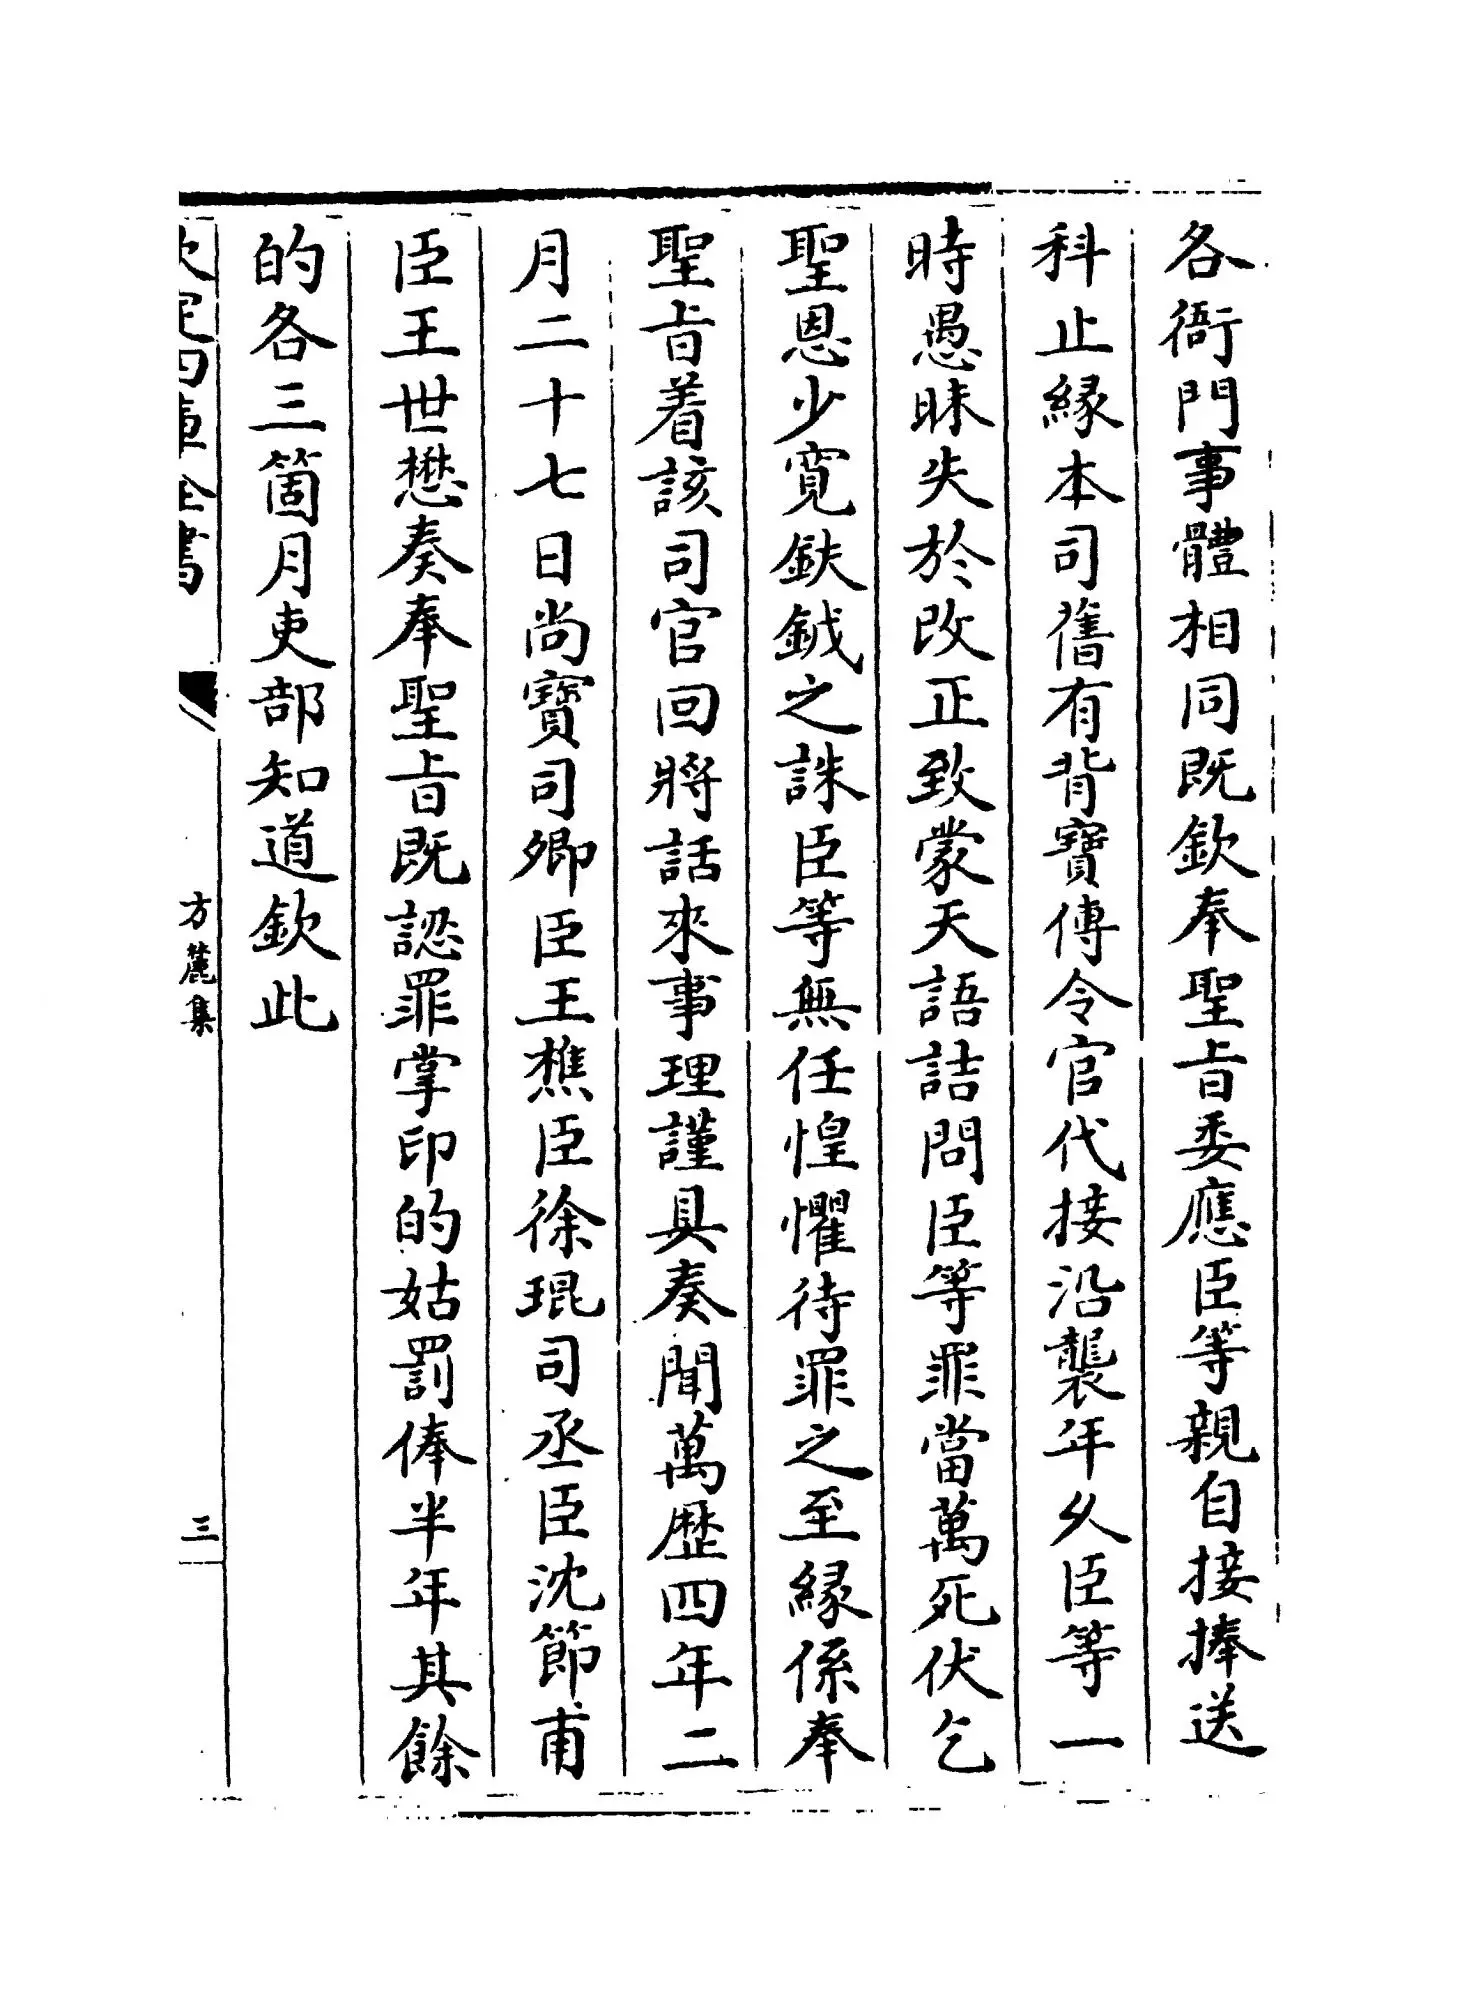 各衙門事體相同既欽奉聖旨委應臣等親自接捧送
科止緣本司舊有背寶傳令官代接沿襲年久臣等一
時愚昧失於改正致蒙天語詰問臣等罪當萬死伏乞
聖恩少寛鈇鉞之誅臣等無任惶懼待罪之至緣係奉
聖旨着該司官回將話來事理謹具奏聞萬歴四年二
月二十七日尚寶司卿臣王樵臣徐琨司丞臣沈節甫
臣王世懋奏奉聖旨既認罪掌印的姑罰俸半年其餘
的各三箇月吏部知道欽此
欽定四庫全書
方麓集
三